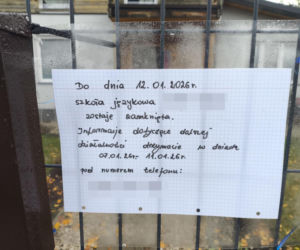 Do dnia 12.01.2026r.
szkoła językowa
zostaje zamknięta.
Informacje dotyczące dalszej
działalności otrzymacie w dniach
07.01.26r. 11.01.26r.
pod numerem telefonu: